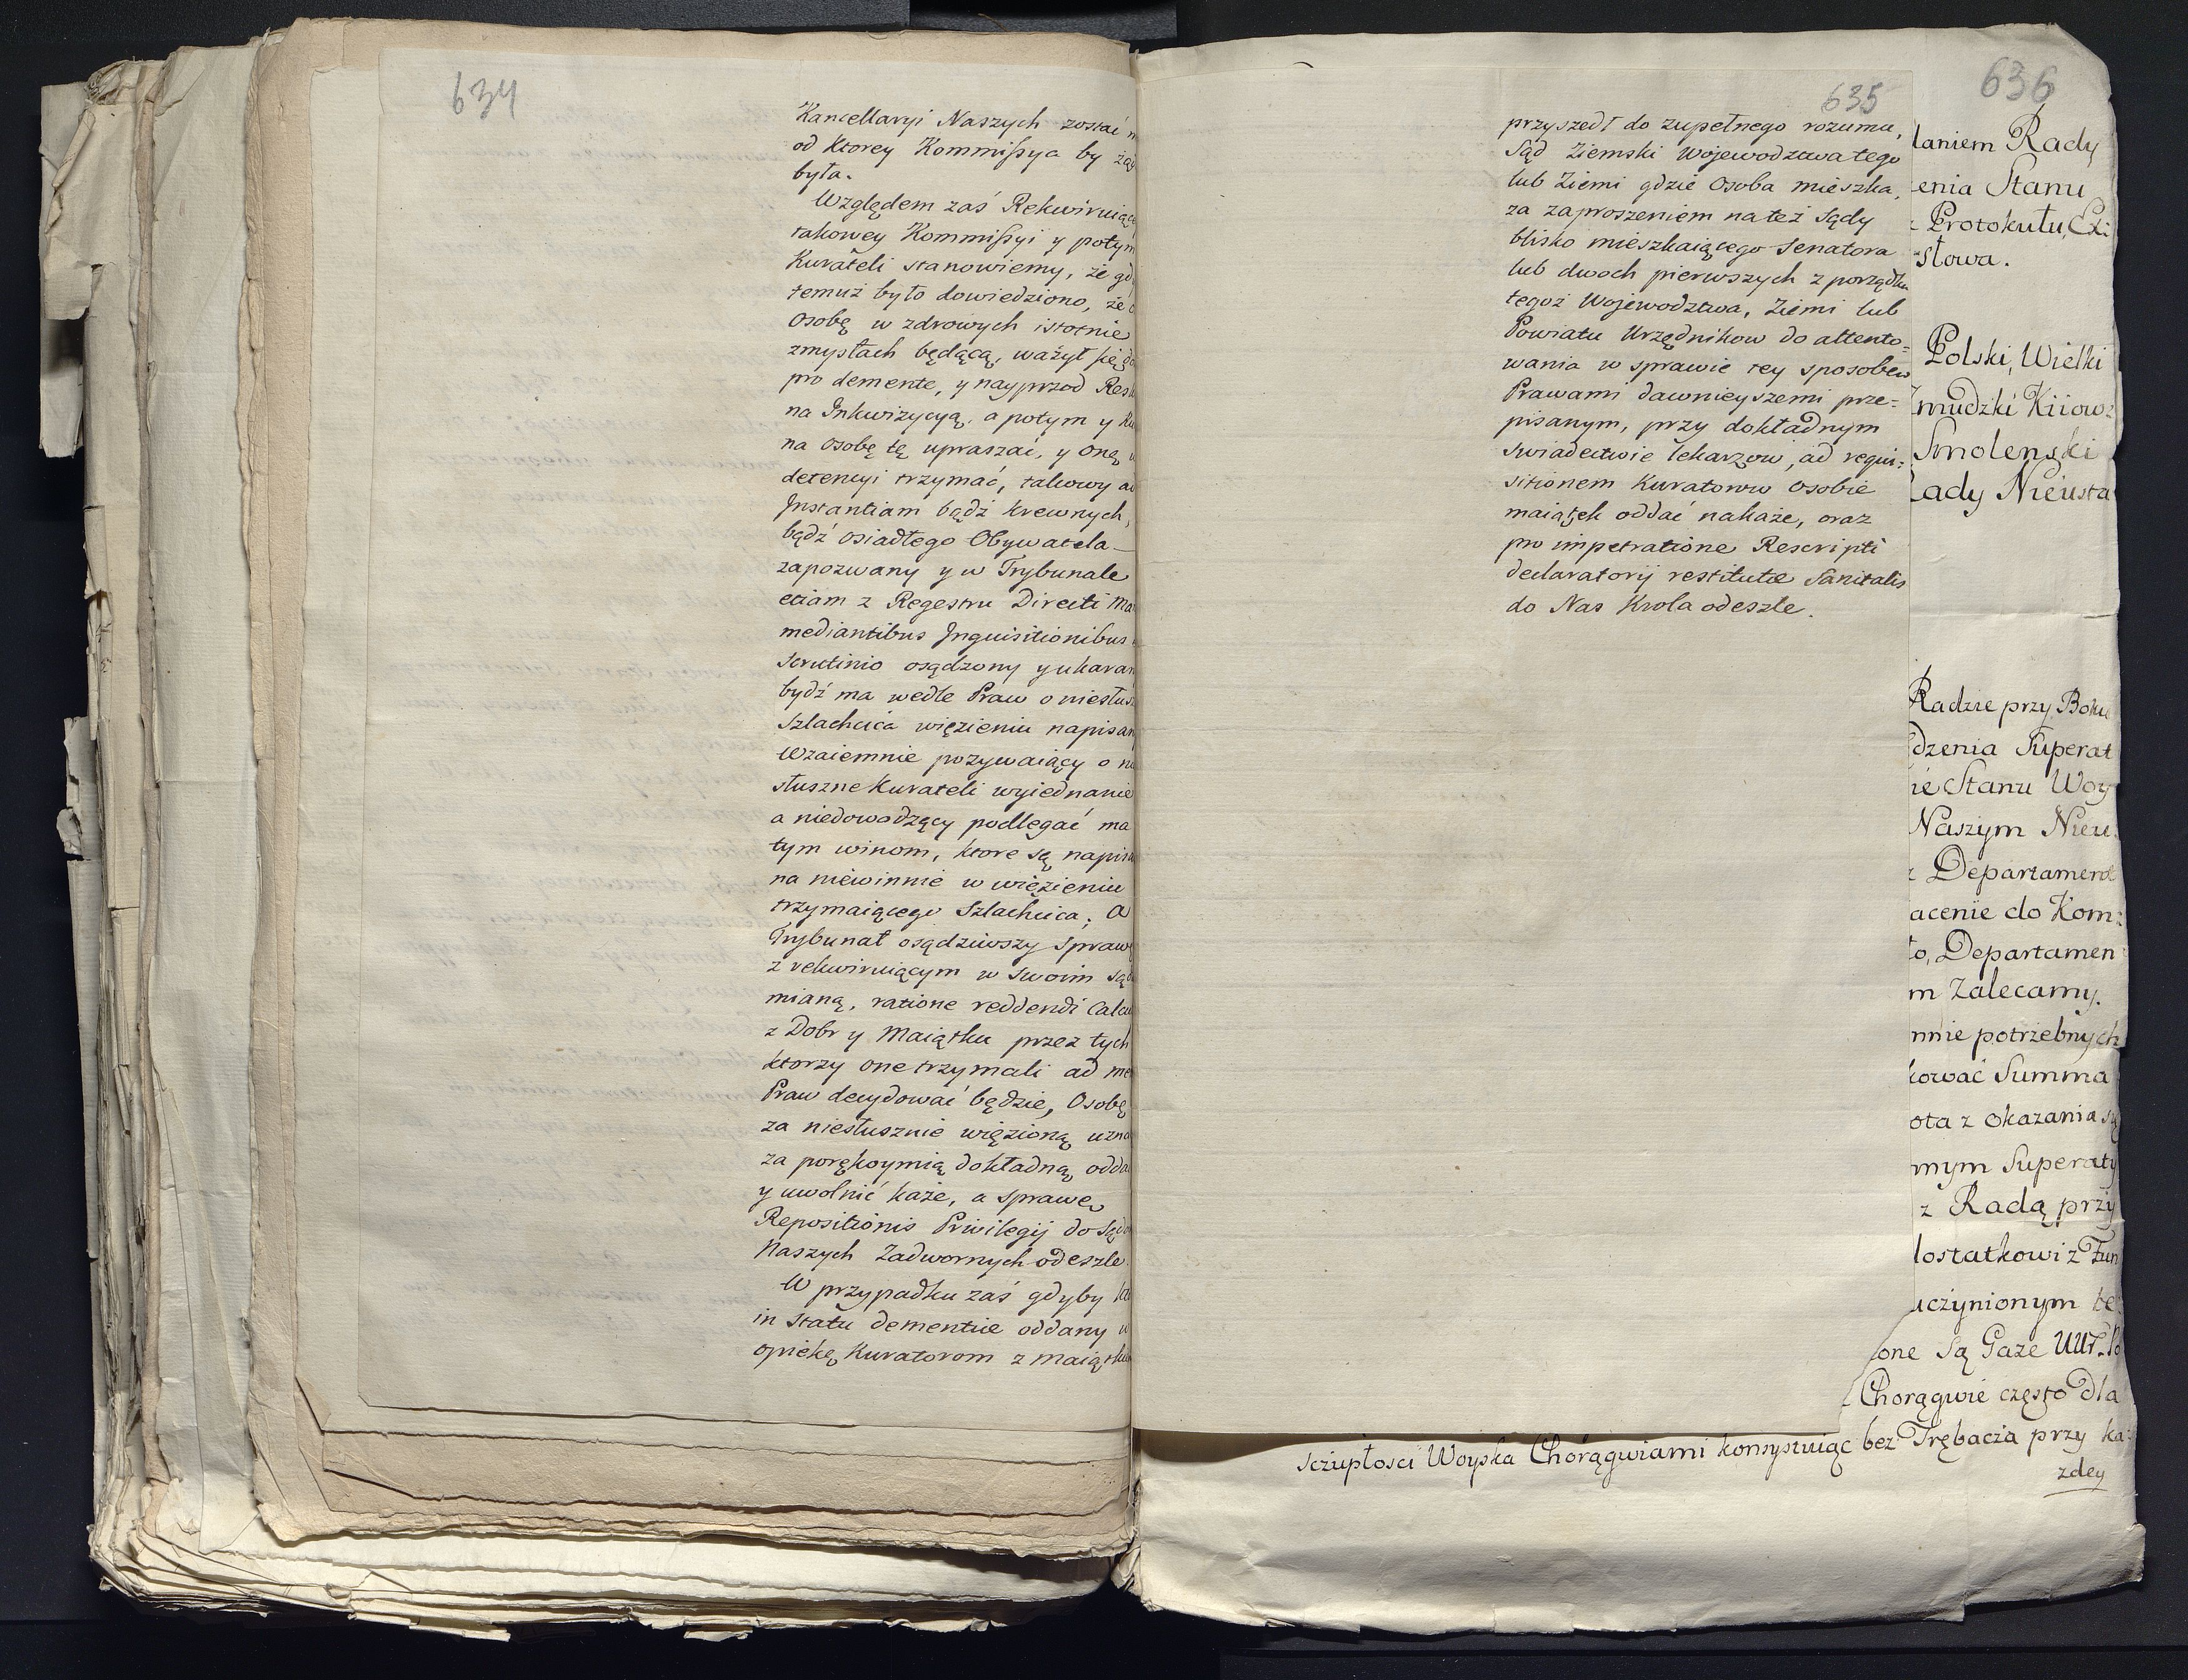 634
Kancellaryi Naszych zostać
od ktorey Kommissya by
była.
Względem zaś Rekwiruiące
takowey Kommissyi y potym
Kurateli stanowiemy, że gd
temuż było dowiedziono, że
Osobę w zdrowych istotnie
zmysłach będącą, ważył się
pro demente, y nayprzod Res
na Inkwizycyą, a potym y Ku
na osobę tę upraszać, y onę
detencyi trzymać, takowy ad
Instantiam bądź krewnych,
bądź osiadłego Obywatela
zapozwany y w Trybunale
etiam z Regestru Directi Ma
mediantibus Inquisitionibus
Scrutinio osądzony y ukaran
bydź ma wedle Praw o niesłusz
Szlachcica więzieniu napisan
Wzaiemnie pozywaiący o nie
słuszne Kurateli wyiednanie
a niedowodzący podlegać ma
tym winom, ktore są napisa
na niewinnie w więzieniu
trzymaiącego Szlachcica. A
Trybunał osądziwszy Sprawę
z rekwiruiącym w swoim są
mianą, ratione reddendi Calcu
z Dobr y Maiątku przez tych
ktorzy one trzymali ad me
Praw decydować będzie, Osobę
za niesłusznie więzioną uzna
za poręką ymią dokładną odda
y uwolnić każe, a sprawę
Repositionis Privilegij do Sądo
Naszych Zadwornych odeszle.
W przypadku zaś gdyby
in statu dementiæ oddany w
opiekę Kuratorom z maiątku
635
przyszedł do zupełnego rozumu,
Sąd Ziemski Wojewodztwa tego
lub Ziemi gdzie Osoba mieszka,
za zaproszeniem na też Sądy
blisko mieszkaiącego Senatora
lub dwoch pierwszych z porządku
tegoż Wojewodztwa, Ziemi lub
Powiatu Urzędnikow do attento=
wania w sprawie tey sposobem
Prawami dawnieyszemi prze=
pisanym, przy dokładnym
swiadectwie lekarzow, ad requi=
sitionem Kuratorow Osobie
maiątek oddać nakaże, oraz
pro impetratione Rescripti
declaratorij restitutæ Sanitatis
do Nas Krola odeszle.
636
laniem Rady
enia Stanu
Protokułu, Exi
słowa.
Polski, Wielki
mudzki Kiiow=
Smolenski
ady Nieusta
Radzie przy Boku
dzenia Superat
ie Stanu Woy
Naszym Nieu=
Departament
acenie do Kom=
to, Departamen
m Zalecamy.
mnie potrzebnych
kować Summa
ota z okazania się
mym Superaty
z Radą przy
dostatkowi z Fun
uczynionym
one Są Gaże
Chorągwie często dla
szczupłosci Woyska Chorągwiami konsystuiąc bez Trębacza przy ka=
zdey